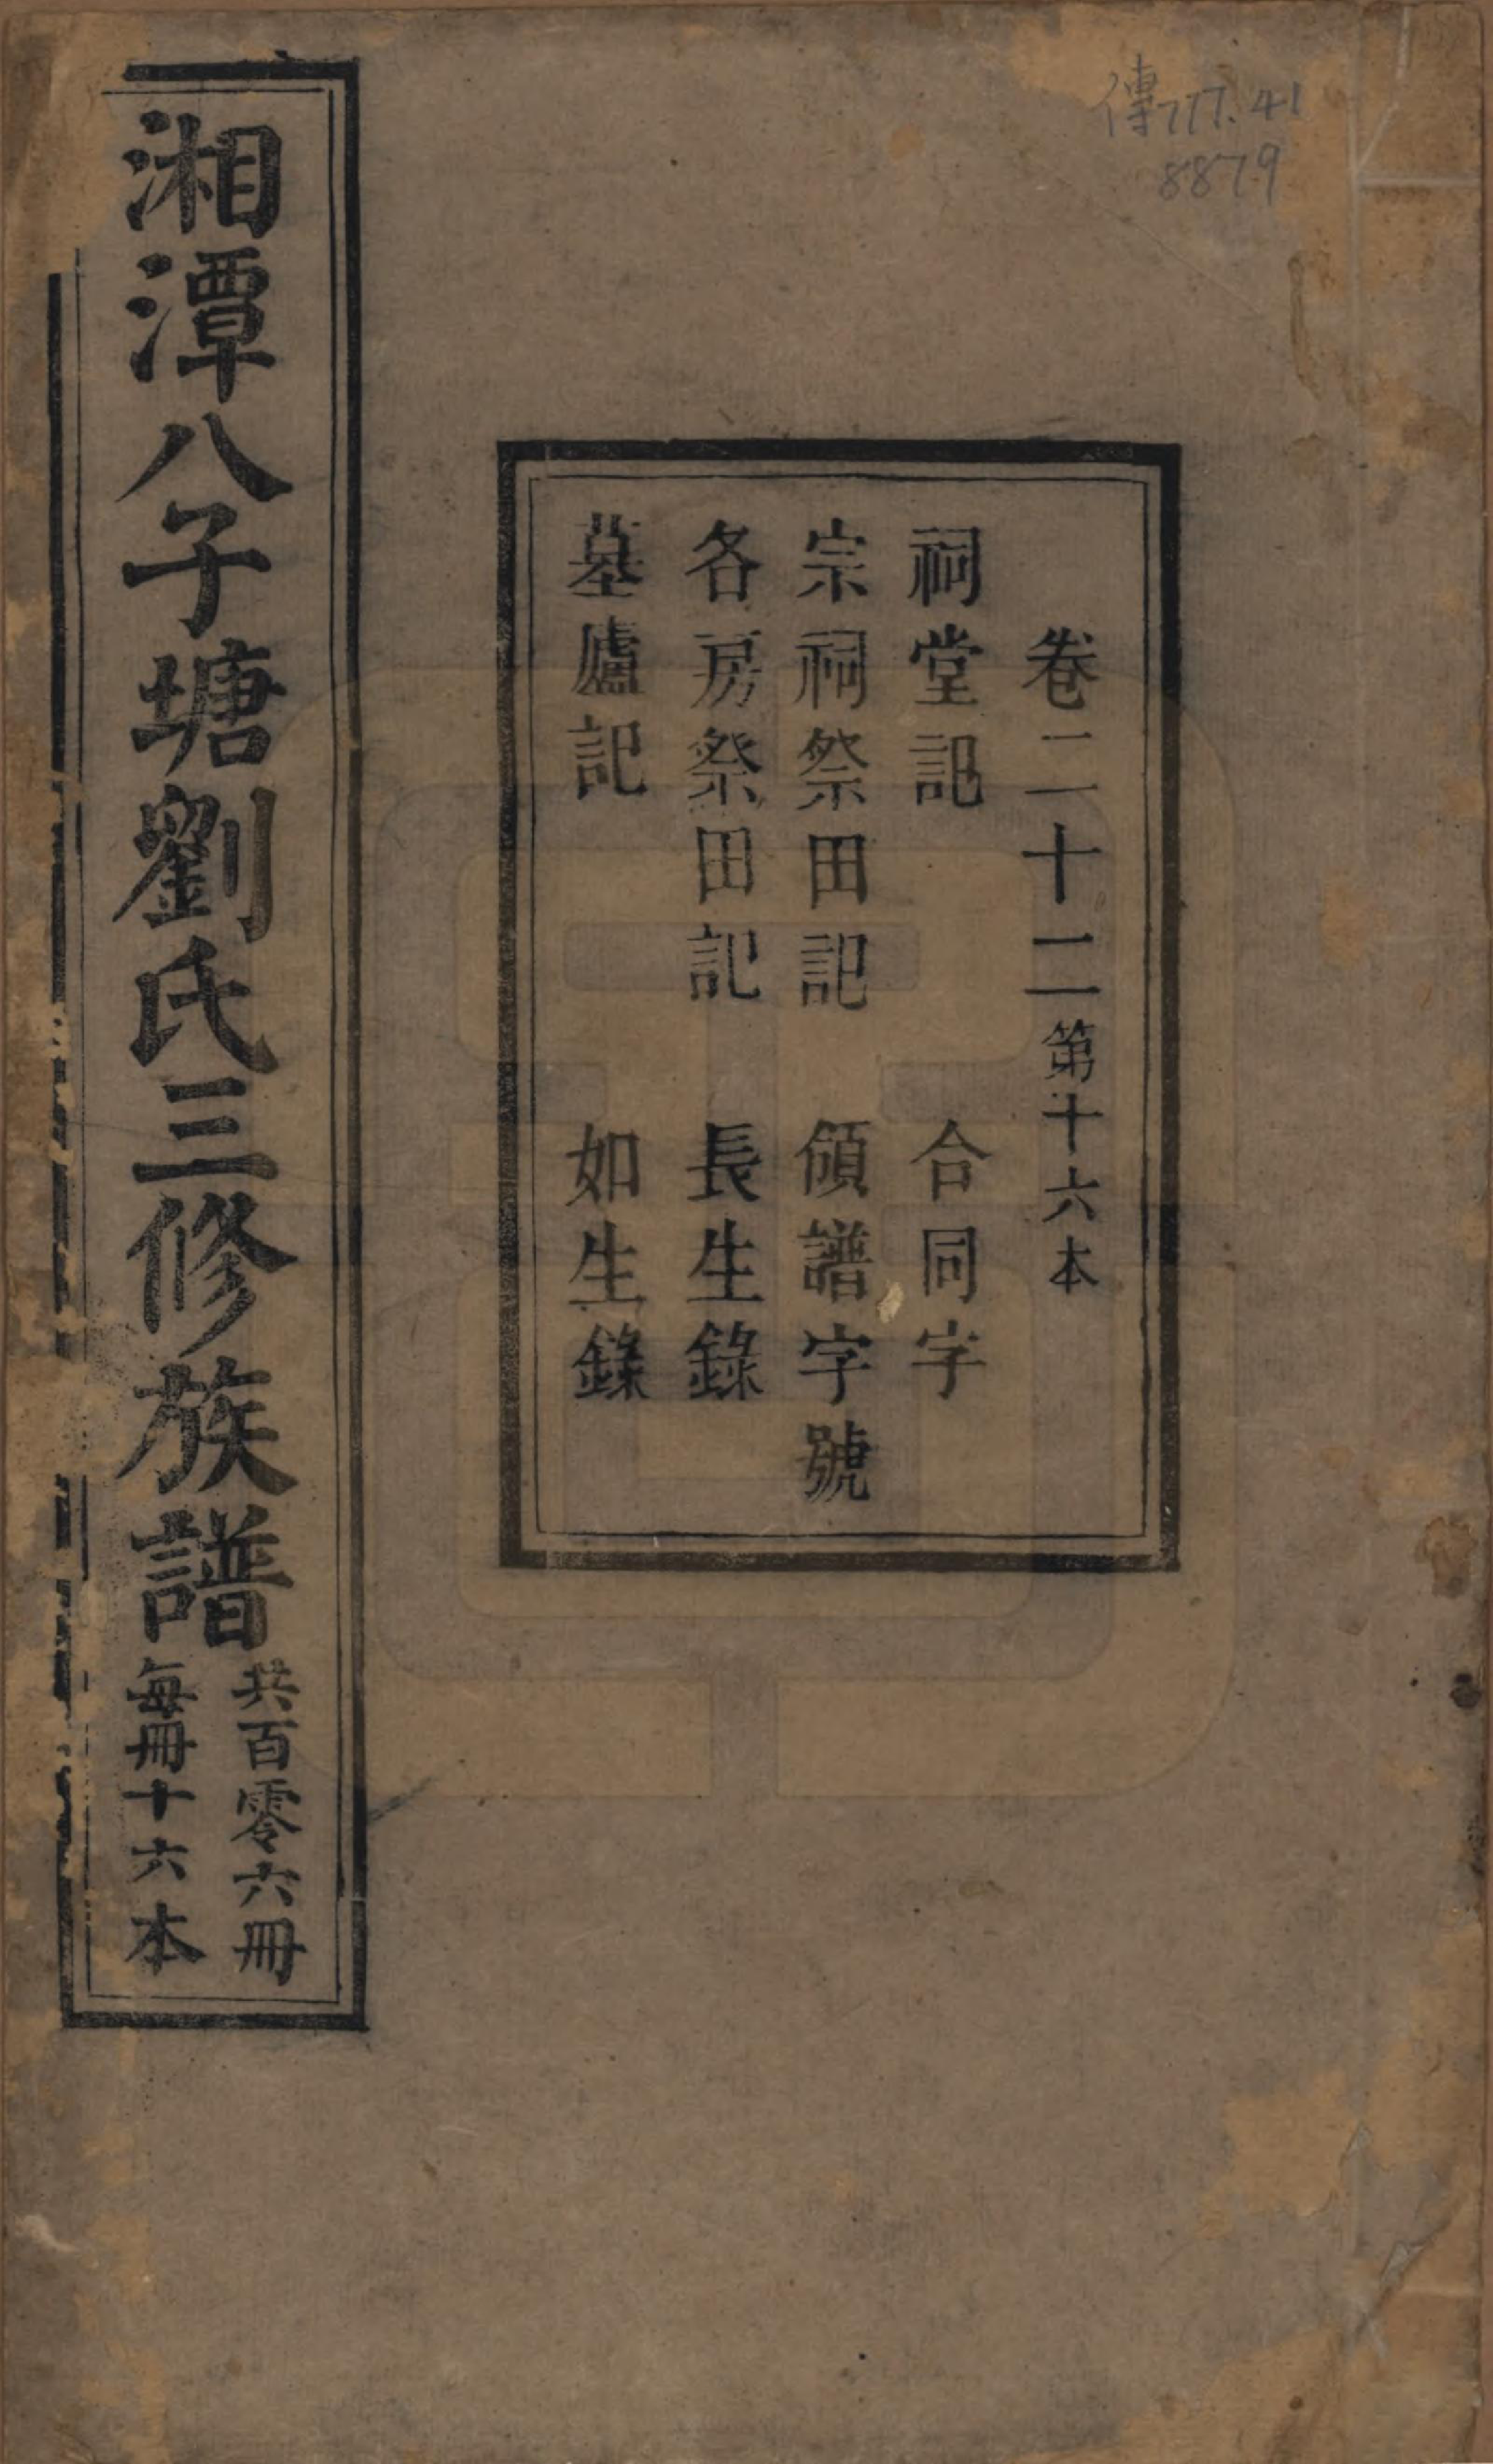 傳777.41
8879
卷二十二第十六本
祠堂記 合同字
宗祠祭田記 領譜字號
各房祭田記 長生錄
墓廬記 如生錄
湘潭八子塘劉氏三修族譜
共百零六冊
每冊十六本